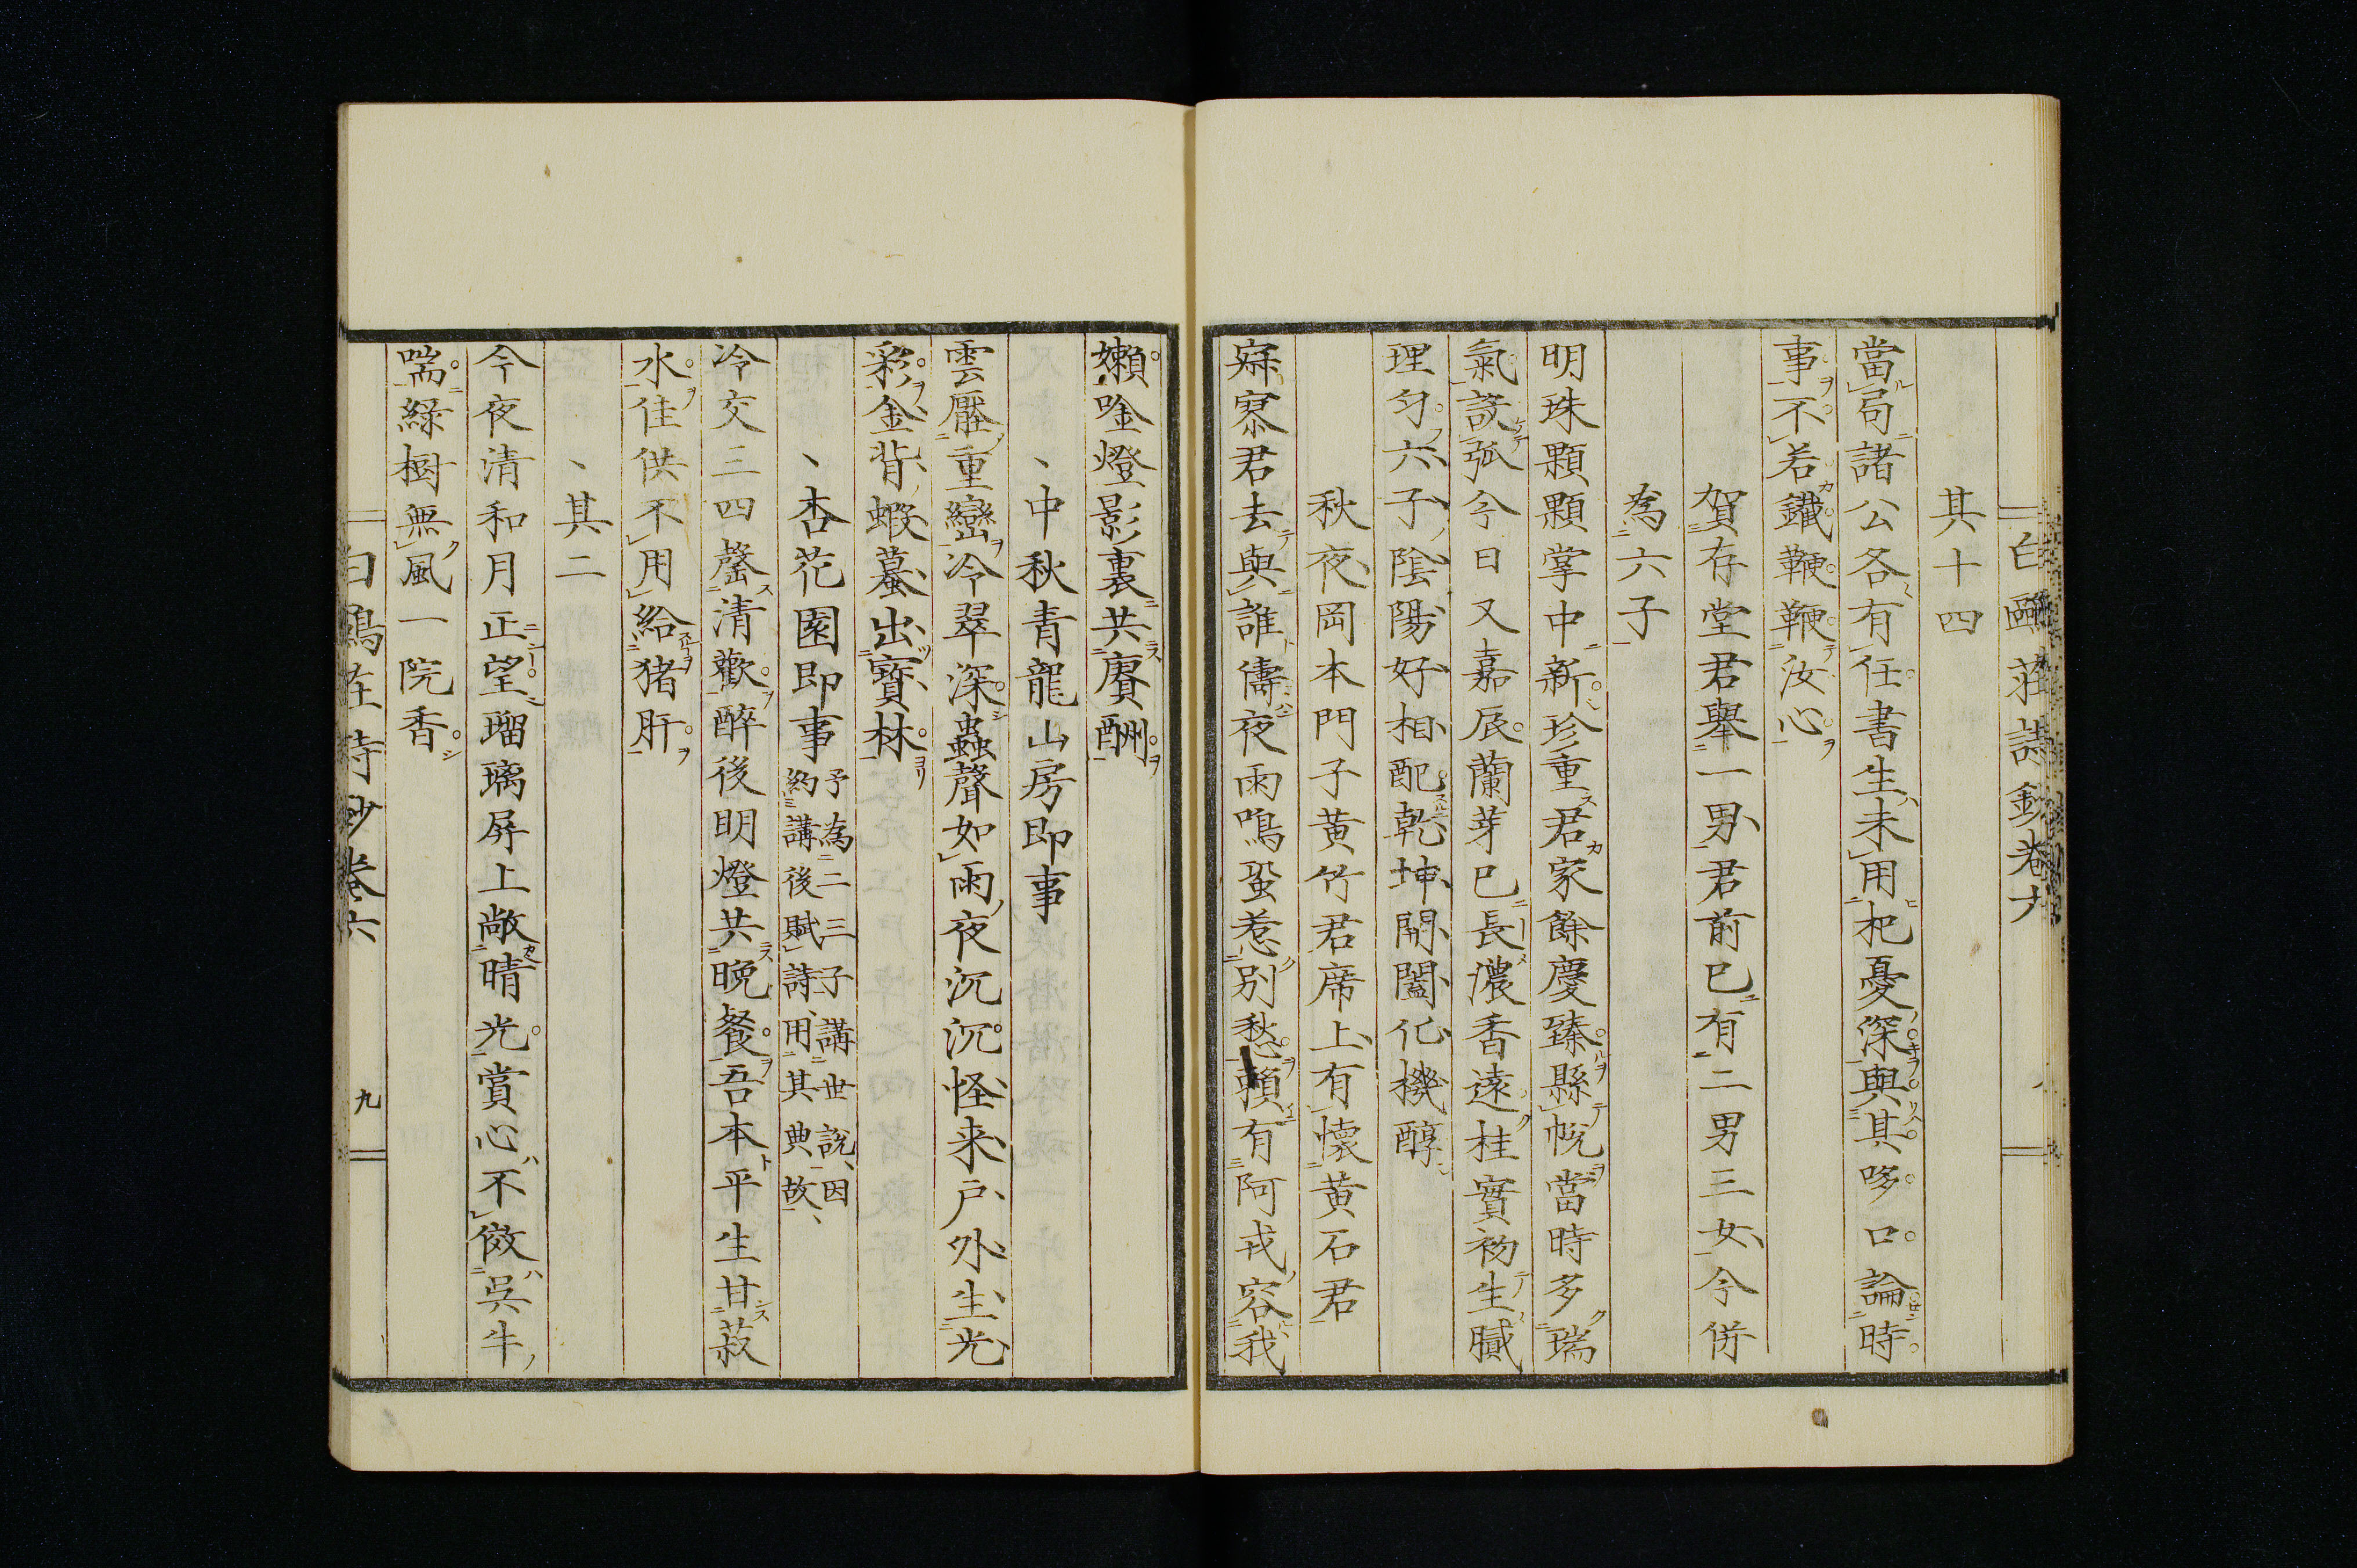 白鷗莊詩鈔卷六
其十四
當局諸公各有任書生未用杞憂深與其哆口論時
事不若鐵鞭鞭汝心
賀存堂君舉一男君前已有二男三女今併
為六子
明珠顆顆掌中新珍重君家餘慶臻縣帨當時多瑞
氣設弧今日又嘉辰蘭芽已長濃香遠桂實初生膩
理勻六子陰陽好相配乾坤開闔化機醇
秋夜岡本門子黃竹君席上有懷黃石君
寂寥君去與誰儔夜雨鳴蛩惹別愁賴有阿戎容我
嬾唫燈影裏共賡酬
中秋青龍山房即事
雲壓重巒冷翠深蟲聲如雨夜沉沉怪来戶外生光
彩金背蝦蟇出寶林
杏花園即事 予為二三子講世說因
約講後賦詩用其典故
冷交三四罄清歡醉後明燈共晚餐吾本平生甘菽
水佳供不用給猪肝
其二
今夜清和月正望瑠璃屏上敞晴光賞心不傚吳牛
喘綠樹無風一院香
白鷗莊詩鈔卷六
九